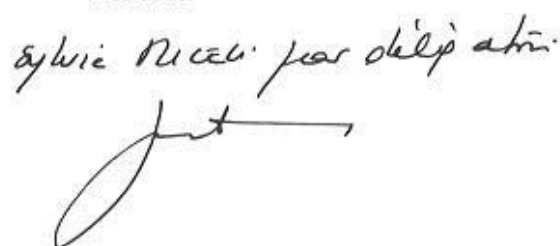 Sylvie Miceli par délégation